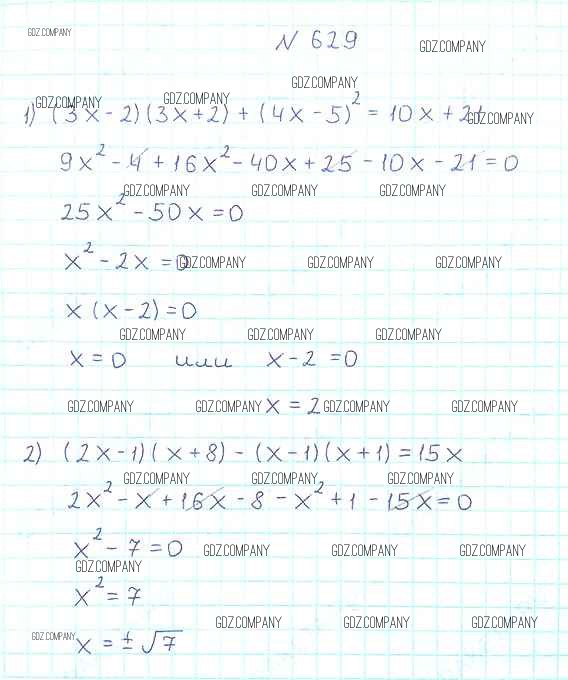 GDZ.COMPANY
N 629
GDZ.COMPANY
GDZ.COMPANY
GDZ.COMPANY GDZ.COMPANY
1) (3x-2)(3x+2)+(4x-5)² = 10x+21
GDZ.COMPANY
9x²-4+16x²-40x+25-10x-21=0
GDZ.COMPANY GDZ.COMPANY GDZ.COMPANY
25x²-50x=0
x²-2x=0
GDZ.COMPANY GDZ.COMPANY GDZ.COMPANY
x(x-2)=0
GDZ.COMPANY GDZ.COMPANY GDZ.COMPANY
x=0 или x-2=0
GDZ.COMPANY GDZ.COMPANY x=2 GDZ.COMPANY GDZ.COMPANY
2) (2x-1)(x+8)-(x-1)(x+1)=15x
GDZ.COMPANY GDZ.COMPANY GDZ.COMPANY
2x²-x+16x-8-x²+1-15x=0
x²-7=0 GDZ.COMPANY GDZ.COMPANY GDZ.COMPANY
GDZ.COMPANY
x²=7
GDZ.COMPANY GDZ.COMPANY GDZ.COMPANY
GDZ.COMPANY
x=±√7